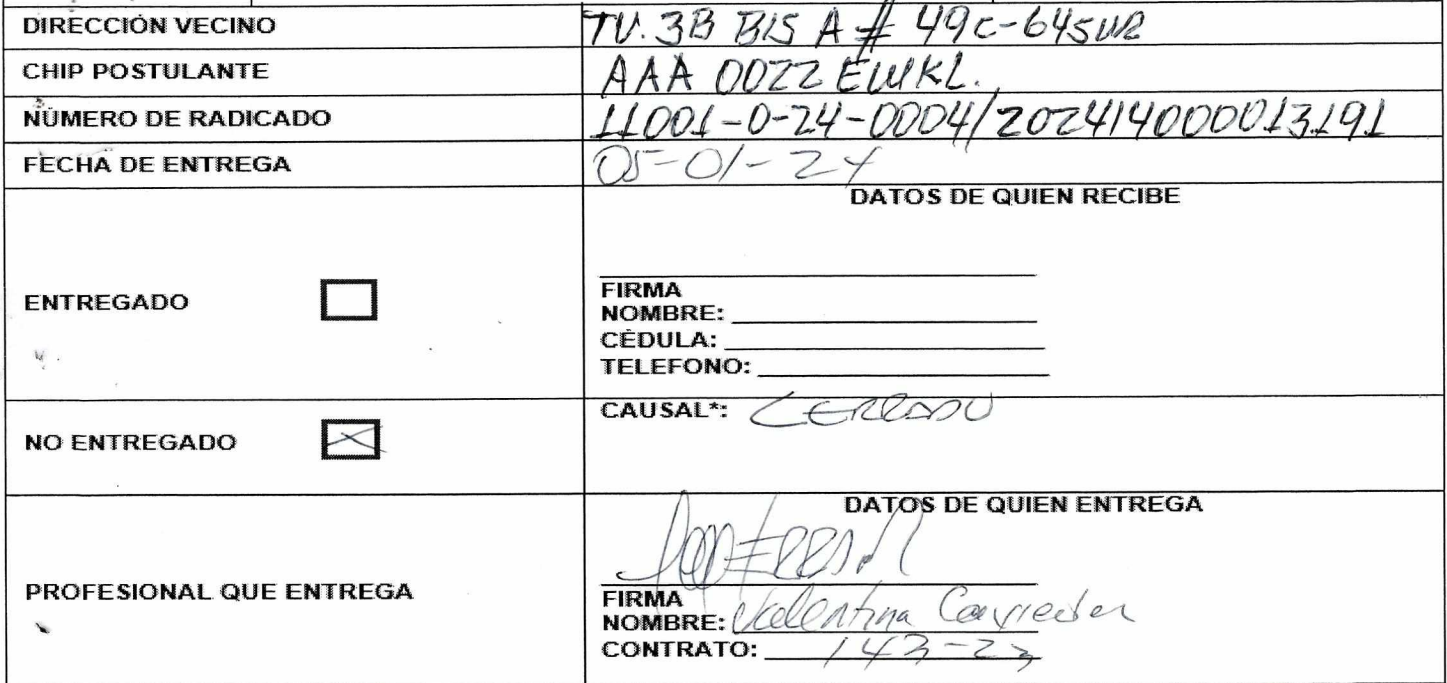 DIRECCIÓN VECINO TV. 3B BIS A # 49C-64SUR
CHIP POSTULANTE AAA 0022 EWKL.
NÚMERO DE RADICADO 11001-0-24-0004/202414000013191
FECHA DE ENTREGA 05-01-24
DATOS DE QUIEN RECIBE
ENTREGADO
FIRMA
NOMBRE:
CÉDULA:
TELEFONO:
NO ENTREGADO
CAUSAL*: CERRADO
DATOS DE QUIEN ENTREGA
PROFESIONAL QUE ENTREGA
FIRMA
NOMBRE: Valentina
CONTRATO: 143-23